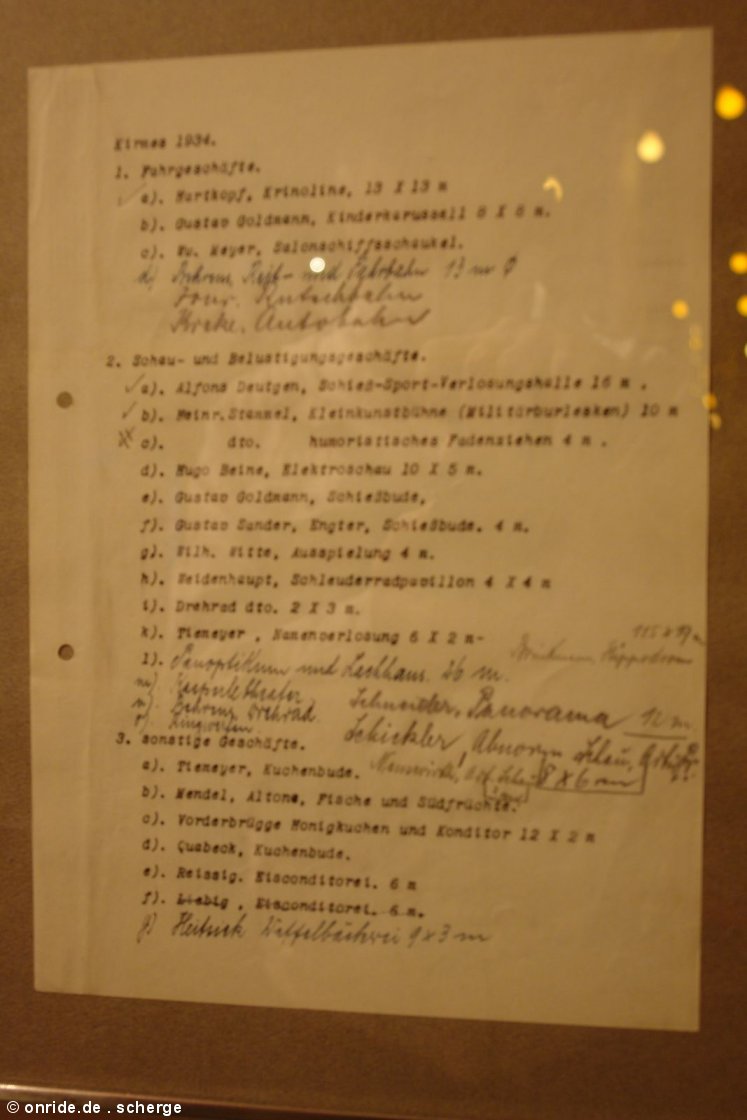 Kirmes 1934.
1. Fahrgeschäfte.
a). Hartkopf, Krinoline, 13 X 13 m
b). Gustav Goldmann, Kinderkarussell 8 X 8 m.
c). Ww. Meyer, Salonschiffsschaukel.
d) Reit- und Fahrbahn 13 m Ø
Rutschbahn
Autobahn
2. Schau- und Belustigungsgeschäfte.
a). Alfons Deutgen, Schieß-Sport-Verlosungshalle 16 m .
b). Heinr. Stammel, Kleinkunstbühne (Militärburlesken) 10 m
c). dto. humoristisches Fadenziehen 4 m .
d). Hugo Beine, Elektroschau 10 X 5 m.
e). Gustav Goldmann, Schießbude,
f). Gustav Sander, Engter, Schießbude. 4 m.
g). Wilh. Witte, Ausspielung 4 m.
h). Heidenhaupt, Schleuderradpavillon 4 X 4 m
i). Drehrad dto. 2 X 3 m.
k). Tiemeyer , Namenverlosung 6 X 2 m-
Hippodrom
l). Panoptikum und Lachhaus. 26 m.
m) Kasperletheater
n) Drehrad. Schneider, Panorama 12 m
Schickler, Schau,
3. sonstige Geschäfte.
a). Tiemeyer, Kuchenbude. 8 x 6 m
b). Mendel, Altona, Fische und Südfrüchte.
c). Vorderbrügge Honigkuchen und Konditor 12 X 2 m
d). Quabeck, Kuchenbude.
e). Reissig. Eisconditorei. 6 m
f). Liebig , Eisconditorei. 6 m.
g) Waffelbäckerei 9 x 3 m
© onride.de . scherge